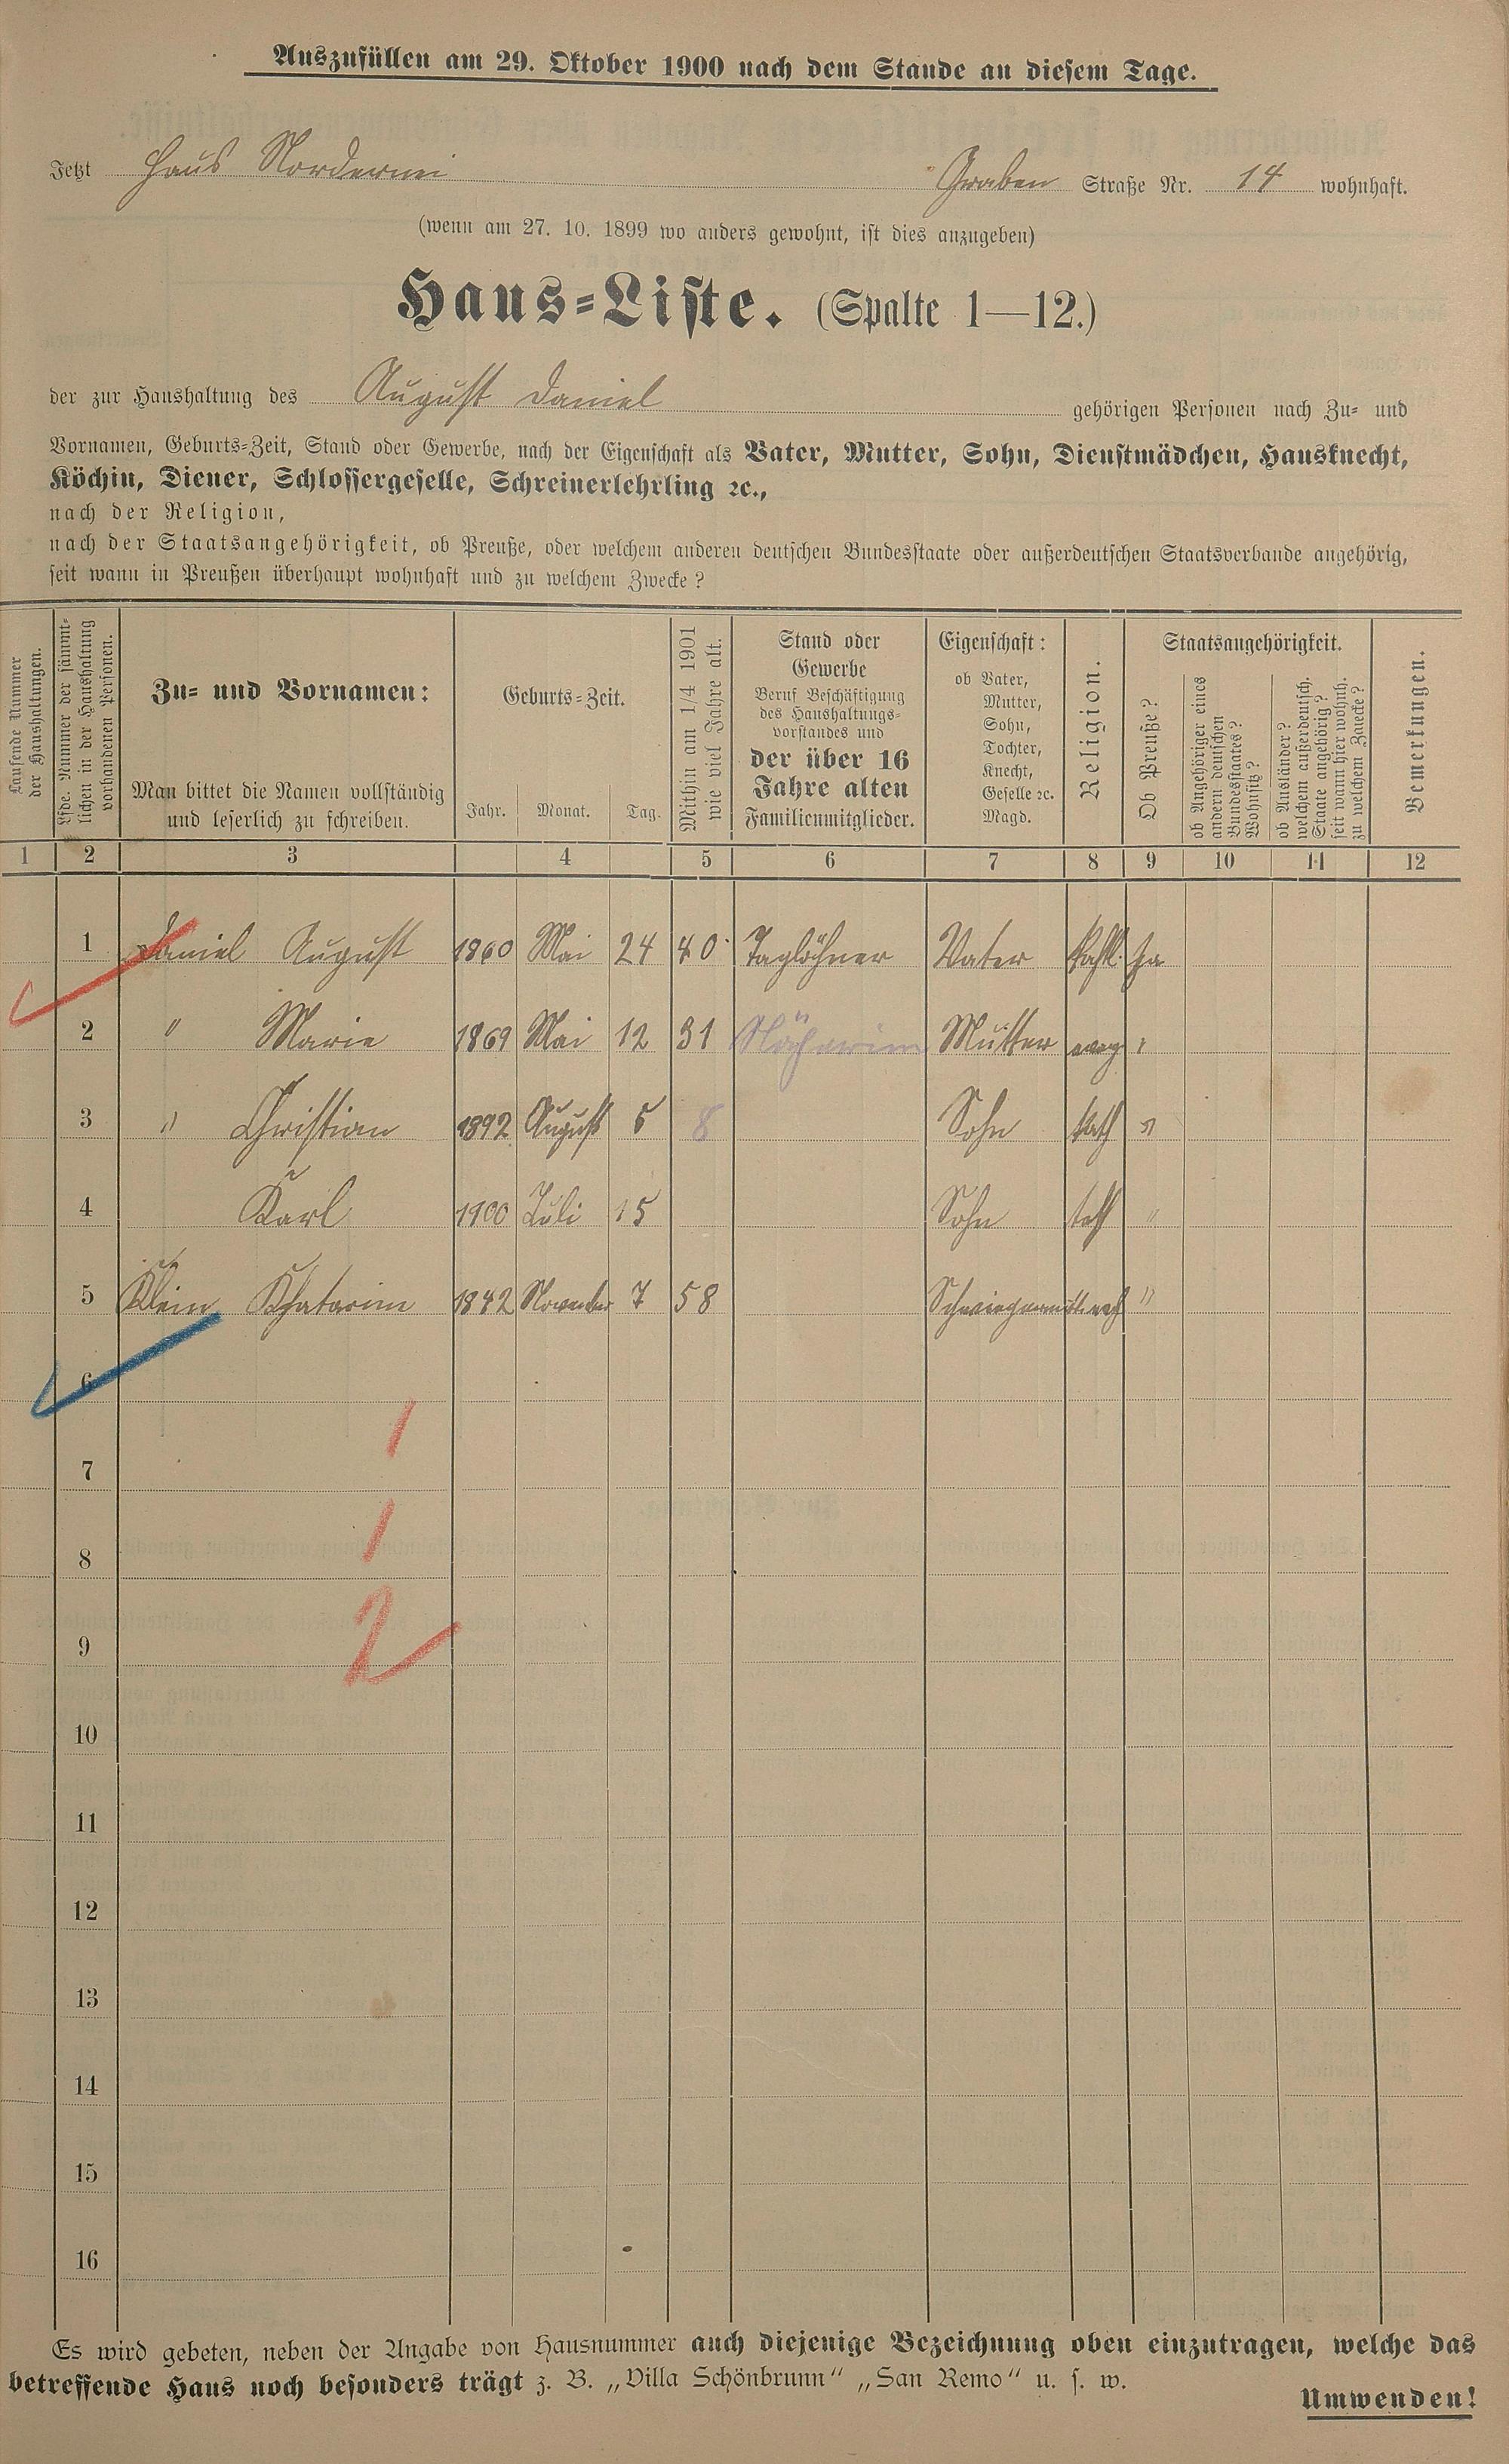 Auszufüllen am 29. Oktober 1900 nach dem Stande an diesem Tage.
Jetzt Haus Nordernei Graben Straße Nr. 14 wohnhaft.
(wenn am 27. 10. 1899 wo anders gewohnt, ist dies anzugeben)
Haus-Liste. (Spalte 1—12.)
der zur Haushaltung des August Daniel gehörigen Personen nach Zu- und
Vornamen, Geburts-Zeit, Stand oder Gewerbe, nach der Eigenschaft als Vater, Mutter, Sohn, Dienstmädchen, Hausknecht,
Köchin, Diener, Schlossergeselle, Schreinerlehrling ꝛc.,
nach der Religion,
nach der Staatsangehörigkeit, ob Preuße, oder welchem anderen deutschen Bundesstaate oder außerdeutschen Staatsverbande angehörig,
seit wann in Preußen überhaupt wohnhaft und zu welchem Zwecke?
Laufende Nummer
der Haushaltungen.
Lfde. Nummer der sämmt-
lichen in der Haushaltung
vorhandenen Personen.
Zu- und Vornamen:
Man bittet die Namen vollständig
und leserlich zu schreiben.
Geburts-Zeit.
Jahr. Monat. Tag.
Mithin am 1/4 1901
wie viel Jahre alt.
Stand oder
Gewerbe
Beruf Beschäftigung
des Haushaltungs-
vorstandes und
der über 16
Jahre alten
Familienmitglieder.
Eigenschaft:
ob Vater,
Mutter,
Sohn,
Tochter,
Knecht,
Geselle ꝛc.
Magd.
Religion.
Staatsangehörigkeit.
Ob Preuße?
ob Angehöriger eines
andern deutschen
Bundesstaates?
Wohnsitz?
ob Ausländer?
welchem außerdeutsch.
Staate angehörig?
seit wann hier wohnh.
zu welchem Zwecke?
Bemerkungen.
1 2 3 4 5 6 7 8 9 10 11 12
1 Daniel August 1860 Mai 24 40 Taglöhner Vater Kahl. Ja
2 " Marie 1869 Mai 12 31 Näherin Mutter evang "
3 " Christian 1892 August 5 8 Sohn kath "
4 Karl 1900 Juli 15 Sohn kath "
5 Klein Khatarine 1842 November 7 58 Schwiegermutt. "
6
1
7
1
8
2
9
10
11
12
13
14
15
16
Es wird gebeten, neben der Angabe von Hausnummer auch diejenige Bezeichnung oben einzutragen, welche das
betreffende Haus noch besonders trägt z. B. „Villa Schönbrunn" „San Remo" u. s. w.
Umwenden!